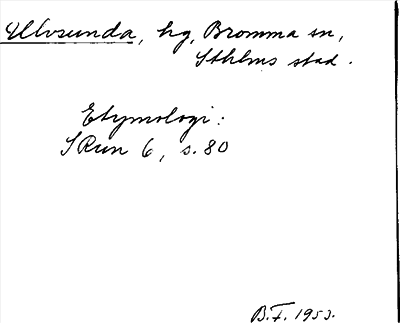 Ulvsunda, hg, Bromma sn,
Sthlms stad.
Etymologi:
SRun 6, s. 80
B.F. 1953.